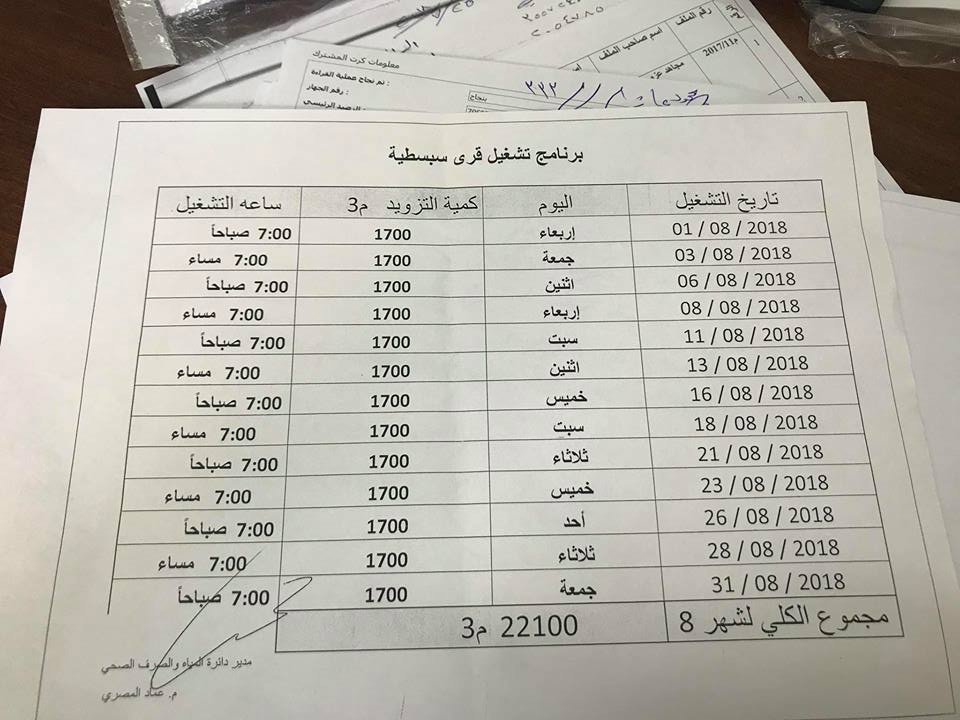 ٢٠٠٥٤٧٨٥
رقم الملف
اسم صاحب الملف
1
2017/11م
مجاهد عز
معلومات كرت المشترك
تم نجاح عملية القراءة :
بنجاح
رقم الجهاز :
الرصيد الرئيسي
برنامج تشغيل قرى سبسطية
تاريخ التشغيل اليوم كمية التزويد م3 ساعه التشغيل
01 / 08 / 2018 إربعاء 1700 7:00 صباحاً
03 / 08 / 2018 جمعة 1700 7:00 مساء
06 / 08 / 2018 اثنين 1700 7:00 صباحاً
08 / 08 / 2018 إربعاء 1700 7:00 مساء
11 / 08 / 2018 سبت 1700 7:00 صباحاً
13 / 08 / 2018 اثنين 1700 7:00 مساء
16 / 08 / 2018 خميس 1700 7:00 صباحاً
18 / 08 / 2018 سبت 1700 7:00 مساء
21 / 08 / 2018 ثلاثاء 1700 7:00 صباحاً
23 / 08 / 2018 خميس 1700 7:00 مساء
26 / 08 / 2018 أحد 1700 7:00 صباحاً
28 / 08 / 2018 ثلاثاء 1700 7:00 مساء
31 / 08 / 2018 جمعة 1700 7:00 صباحاً
مجموع الكلي لشهر 8 22100 م3
مدير دائرة المياه والصرف الصحي
م. عماد المصري